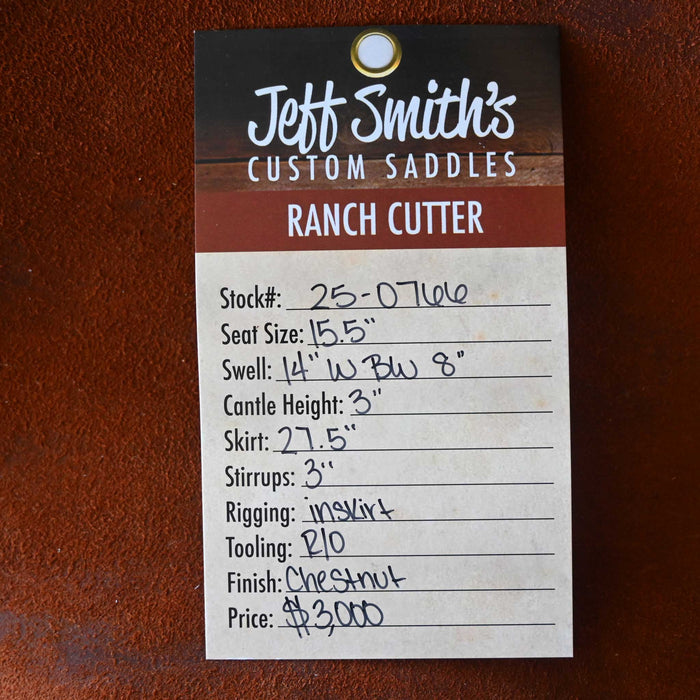 Jeff Smith's
CUSTOM SADDLES
RANCH CUTTER
Stock#: 25-0766
Seat Size: 15.5"
Swell: 14" W BW 8"
Cantle Height: 3"
Skirt: 27.5"
Stirrups: 3"
Rigging: inskirt
Tooling: R/O
Finish: Chestnut
Price: $3,000